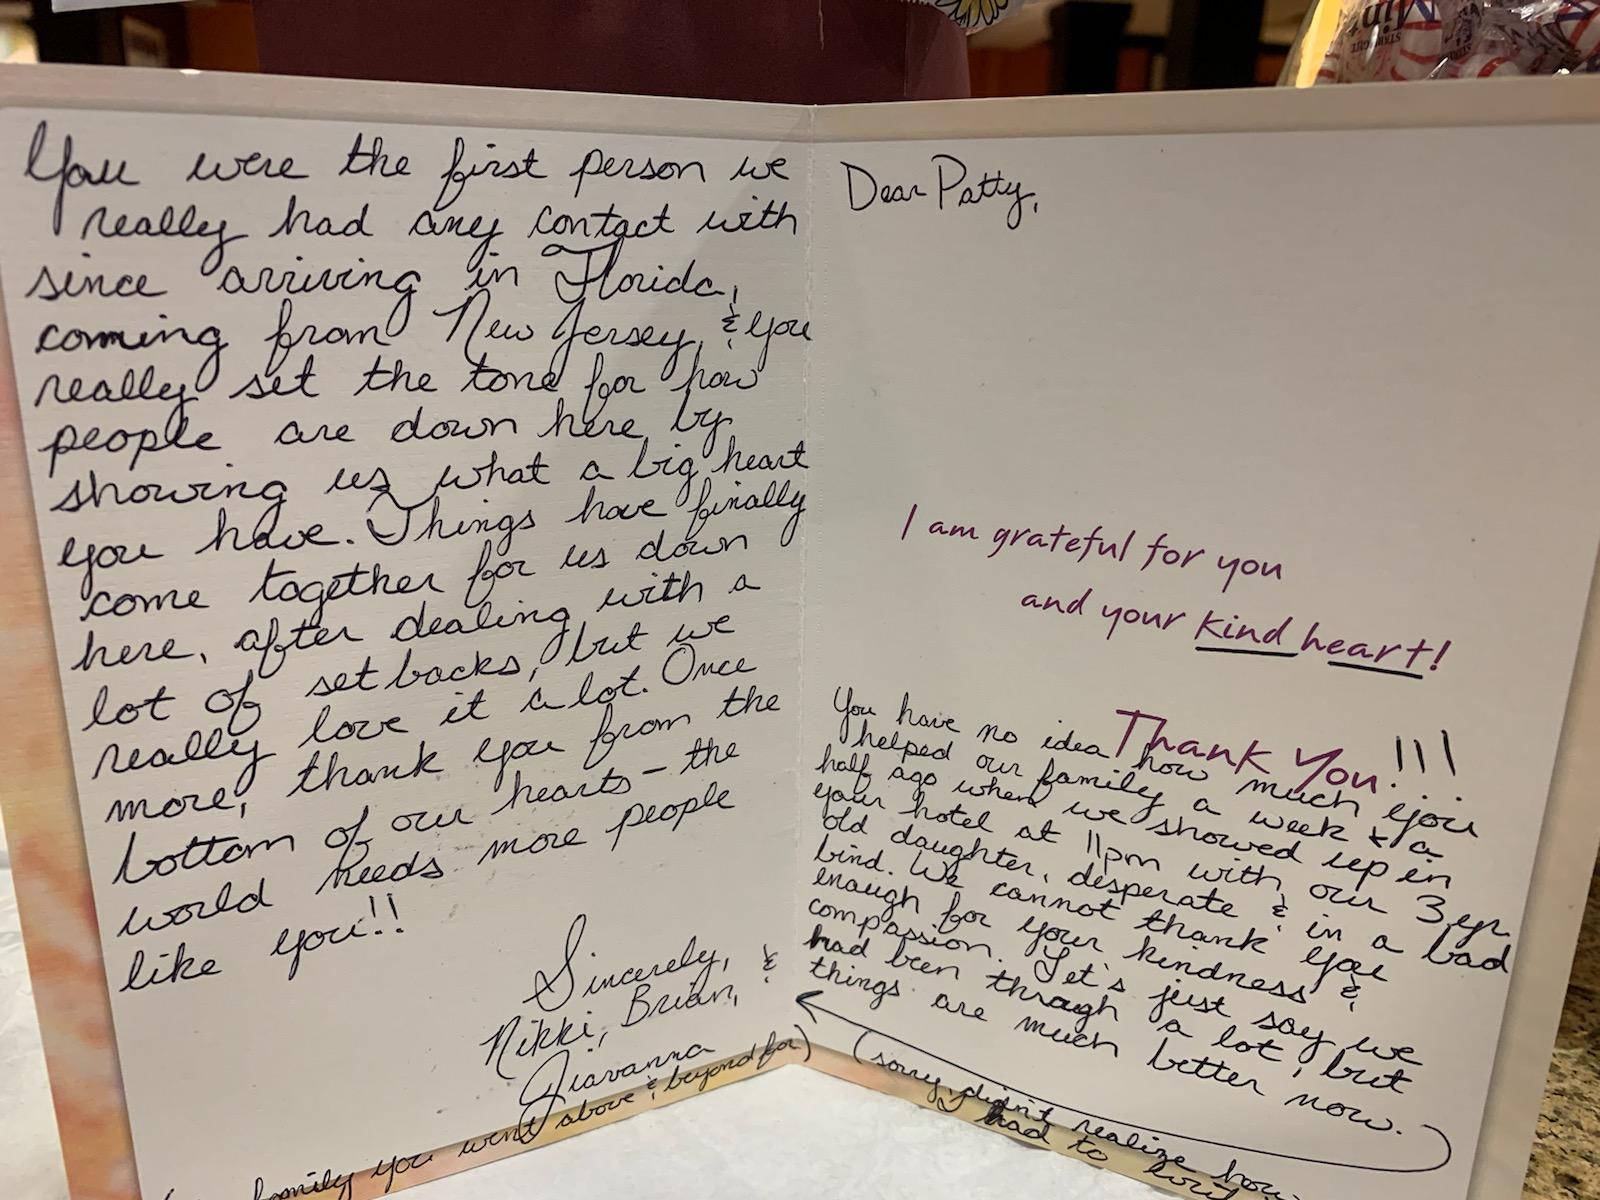 Dear Patty,
I am grateful for you
and your kind heart!
Thank You!!!
You have no idea how much you
helped our family a week & a
half ago when we showed up in
your hotel at 11pm with our 3 yr.
old daughter, desperate & in a bad
bind. We cannot thank you
enough for your kindness &
compassion. Let's just say we
had been through a lot, but
things are much better now.
(sorry, didn't realize how
I had to
You were the first person we
really had any contact with
since arriving in Florida,
coming from New Jersey, & you
really set the tone for how
people are down here by
showing us what a big heart
you have. Things have finally
come together for us down
here, after dealing with a
lot of setbacks, but we
really love it a lot. Once
more, thank you from the
bottom of our hearts - the
world needs more people
like you!!
Sincerely,
Nikki, Brian, &
Giavanna
family you went above & beyond for)
Mint